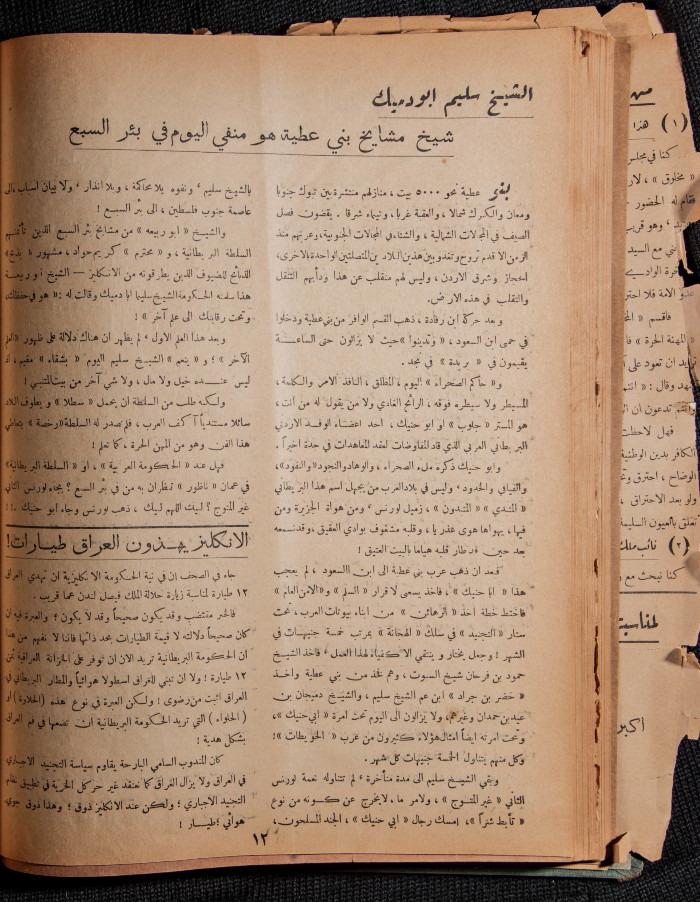 الشيخ سليم ابودميك
شيخ مشايخ بني عطية هو منفي اليوم في بئر السبع
بنو عطية نحو ٥٠٠٠ بيت ، منازلهم منتشرة بين تبوك جنوبا
ومعان والكرك شمالا ، والعقبة غربا ، وتيماء شرقا . يقضون فصل
الصيف في المجلات الشمالية ، والشتاء في المجلات الجنوبية ، وعربتهم منذ
الزمن الاقدم تروح وتغدو بين هذين البلادين المتصلتين الواحدة بالاخرى ،
الحجاز وشرق الاردن ، وليس لهم منقلب عن هذا ودأبهم التنقل
والتقلب في هذه الارض .
وبعد حركة ابن رفادة ، ذهب القسم الوافر من بني عطية ودخلوا
في حمى ابن السعود ، « وتدينوا » حيث لا يزالون حتى الساعة
يقيمون في « بريدة » في نجد .
و« حاكم الصحراء » اليوم ، المطلق ، النافذ الامر والكلمة ،
المسيطر ولا سيطره فوقه ، الرائح الغادي ولا من يقول له من أنت ،
هو المستر « جلوب » او ابو حنيك ، احد اعضاء الوفد الاردني
البريطاني العربي الذي قاد المفاوضات لعقد المعاهدات في جدة اخيراً .
وابو حنيك ذكره ملء الصحراء ، والوهاد والنجود « والنفود » ،
والفيافي والحدود ، وليس في بلاد العرب من يجهل اسم هذا البريطاني
« المتبدي » « المتدون » ، زميل لورنس ، ومن هواة الجزيرة ومن
فيها ، يهواها هوى عذريا ، وقلبه مشغوف بوادي العقيق ، وقد نسمعه
بعد حين قد طار قلبه هياما بالبيت العتيق !
فبعد ان ذهب عرب بني عطية الى ابن السعود ، لم يعجب
هذا « ابا حنيك » ، فاخذ يسعى لاقرار « السلم » و « الامن العام »
فاختط خطة اخذ « الرهائن » من ابناء بيوتات العرب ، تحت
ستار « التجنيد » في سلك « الهجانة » بمرتب خمسة جنيهات في
الشهر ! وجعل يختار و ينتقي الاكفياء لهذا العمل ، فاخذ الشيخ
حمود بن فرحان شيخ السبوت ، وهم فخذ من بني عطية واخذ
« خضر بن جراد » ابن عم الشيخ سليم ، والشيخ دميجان بن
عيد بن حمدان وغيرهم ، ولا يزالون الى اليوم تحت امرة « ابي حنيك » ،
وتحت امرته ايضاً امثال هؤلاء كثيرون من عرب « الحويطات » !
وكل منهم يتناول الخمسة جنيهات كل شهر .
وبقي الشيخ سليم الى مدة متأخرة ، لم تتناوله نعمة لورنس
الثاني « غير المتوج » ، ولامر ما ، لا يخرج عن كونه من نوع
« تأبط شراً » ، امسك رجال « ابي حنيك » ، الجند المسلحون ،
بالشيخ سليم ، ونفوه بلا محاكمة ، وبلا انذار ، ولا بيان اسباب ، الى
عاصمة جنوب فلسطين ، الى بئر السبع !
والشيخ « ابو ربيعه » من مشايخ بئر السبع الذين تأتمنهم
السلطة البريطانية ، و « محترم » كريم جواد ، مشهور « بذبح »
الذبائح للضيوف الذين يطرقونه من الانكليز — الشيخ ابو ربيعة
هذا سلمته الحكومة الشيخ سليما ابا دميك وقالت له : « هو في حفظك ،
وتحت رقابتك الى علم آخر » !
وبعد هذا العلم الاول ، لم يظهر ان هناك دلالة على ظهور « العلم
الآخر » ؛ و « ينعم » الشيخ سليم اليوم « بشقاء » مقيم ، اذ
ليس عنده خيل ولا مال ، ولا شي آخر من بيت المتنبي !
ولكنه طلب من السلطة ان يحمل « سطلا » و يطوف البلاد
سائلا مستندياً آكف العرب ، فلم تصدر له السلطة « رخصة » يتعاطي
هذا الفن وهو من المهن الحرة ، كما تعلم !
فهل عند « الحكومة العربية » ، او « السلطة البريطانية »
في عمان « ناظور » تنظران به من في بئر السبع ؟ يجاء لورنس الثاني
غير المتوج ؟ لبيك اللهم لبيك ، ذهب لورنس وجاء ابو حنيك !..
الانكليز يهدون العراق طيارات !
جاء في الصحف ان في نية الحكومة الانكليزية ان تهدي العراق
١٢ طيارة لمناسبة زيارة جلالة الملك فيصل لندن عما قريب .
فالخبر مقتضب وقد يكون صحيحاً وقد لا يكون ؛ والعبرة فيه ان
كان صحيحاً دلالته لا قيمة الطيارات بحد ذاتها فاننا لا نفهم من هذا
ان الحكومة البريطانية تريد الان ان توفر على الخزانة العراقية ثمن
١٢ طيارة ! ولا ان تبني للعراق اسطولا هوائياً والمطار البريطاني في
العراق اثبت من رضوى ! ولكن العبرة في نوع هذه ( الحلاوة ) او
( الحلواء ) التي تريد الحكومة البريطانية ان تضعها في فم العراق
بشكل هدية !
كان المندوب السامي البارحة يقاوم سياسة التجنيد الاجباري
في العراق ولا يزال العراق كما نعتقد غير حر كل الحرية في تطبيق نظام
التجنيد الاجباري ؛ ولكن عند الانكليز ذوق ؛ وهذا ذوق جوي
هوائي ؛ طيار !
١٢
من
( ١ ) هذا
كنا في مجلس
« مخلوق » ، لار
فقام له الحضور
وهو قريب
ني مع السيد
عدو الامة فلا احتر
فاقسم « المخ
« المهنة الحرة »
تريد ان تعود على
فهل لاحظت
الكافر بدين الوطنية
الوضاح ، احترق وتح
ولو بعد الاحتراق ،
تعلق بالعيون السليمة
( ٢ ) نائب ملك
كنا نبحث مع
لمناسبة
اكبر